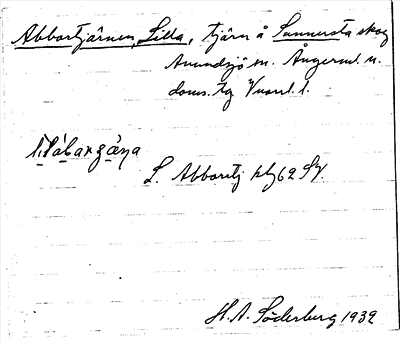 Abbortjärnen, Lilla, tjärn å Sunnersta skog
Anundsjö sn. Ångerml. n.
doms. tg Vnorrl. l.
L. Abbortj klg 62 SV.
H. A. Söderberg 1932